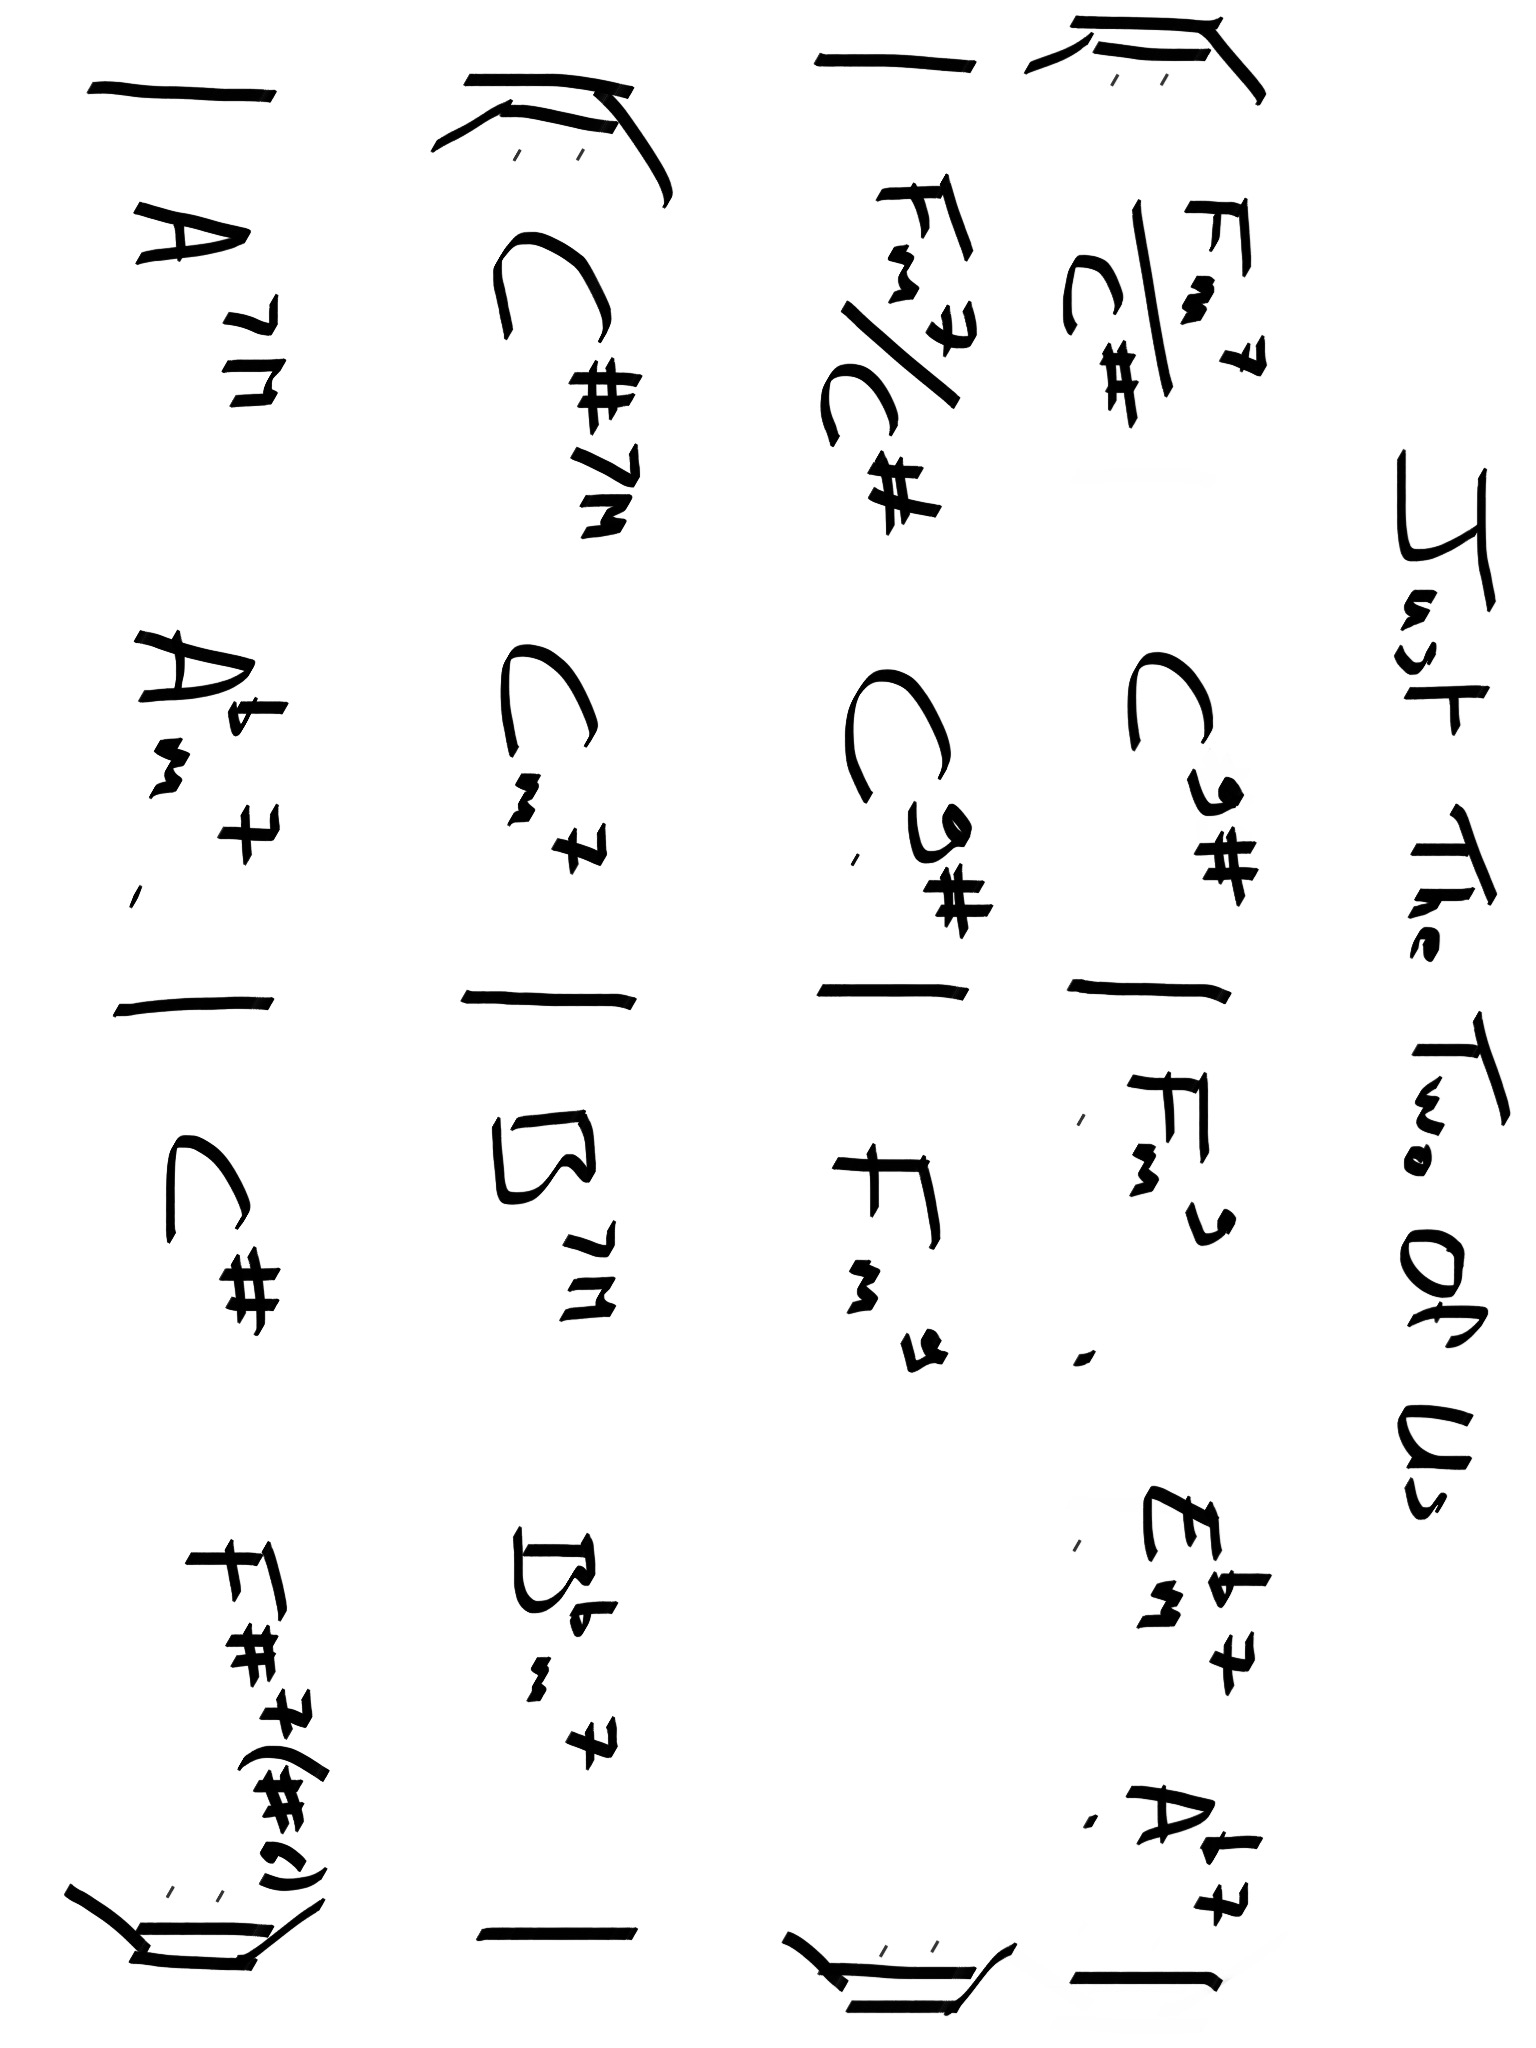 Just The Two Of Us
‖: Fm7/C# C9# | Fm9 Ebm7 Ab7 |
| Fm7/C# C9# | Fm9 :‖
‖: C#7M Cm7 | B7M Bbm7 |
| A7M Abm7 | C# F#7(#9) :‖